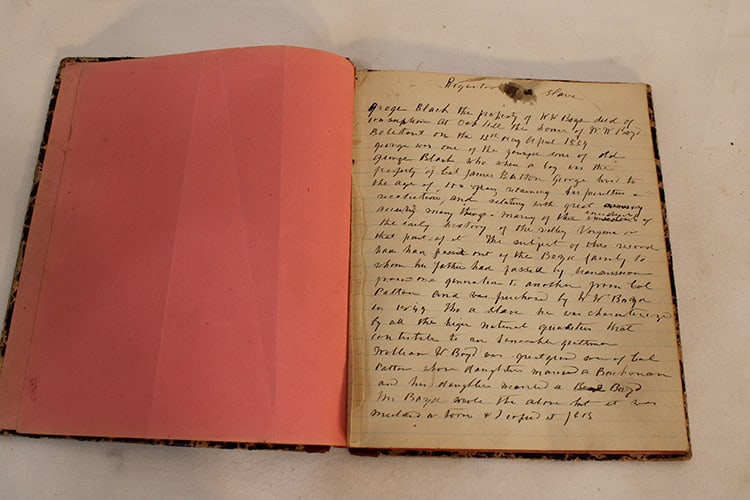 Register slave
George Black the property of W W Boyd died of
consumption at Oak Hill the home of W W Boyd
Botetourt on the 15th day April 1859
george was one of the younger sons of old
George Black who when a boy was the
property of Col James Patton George lived to
the age of 100 years retaining his faculties &
recollections, and relating with great
accuracy many things many of the incidents of
the early history of the valley Virginia or
that part of it The subject of this record
had had passed out of the Boyd family to
whom his father had passed by transmission
from one generation to another from Col
Patton and was purchased by W W Boyd
in 1849 Tho a slave he was characterized
by all the higher natural qualities that
contribute to an honorable gentleman
William W Boyd was great grand son of Col
Patton whose daughter married a Buchanan
and his daughter married a Boyd
Mr Boyd wrote the above but it was
or torn & I copied it